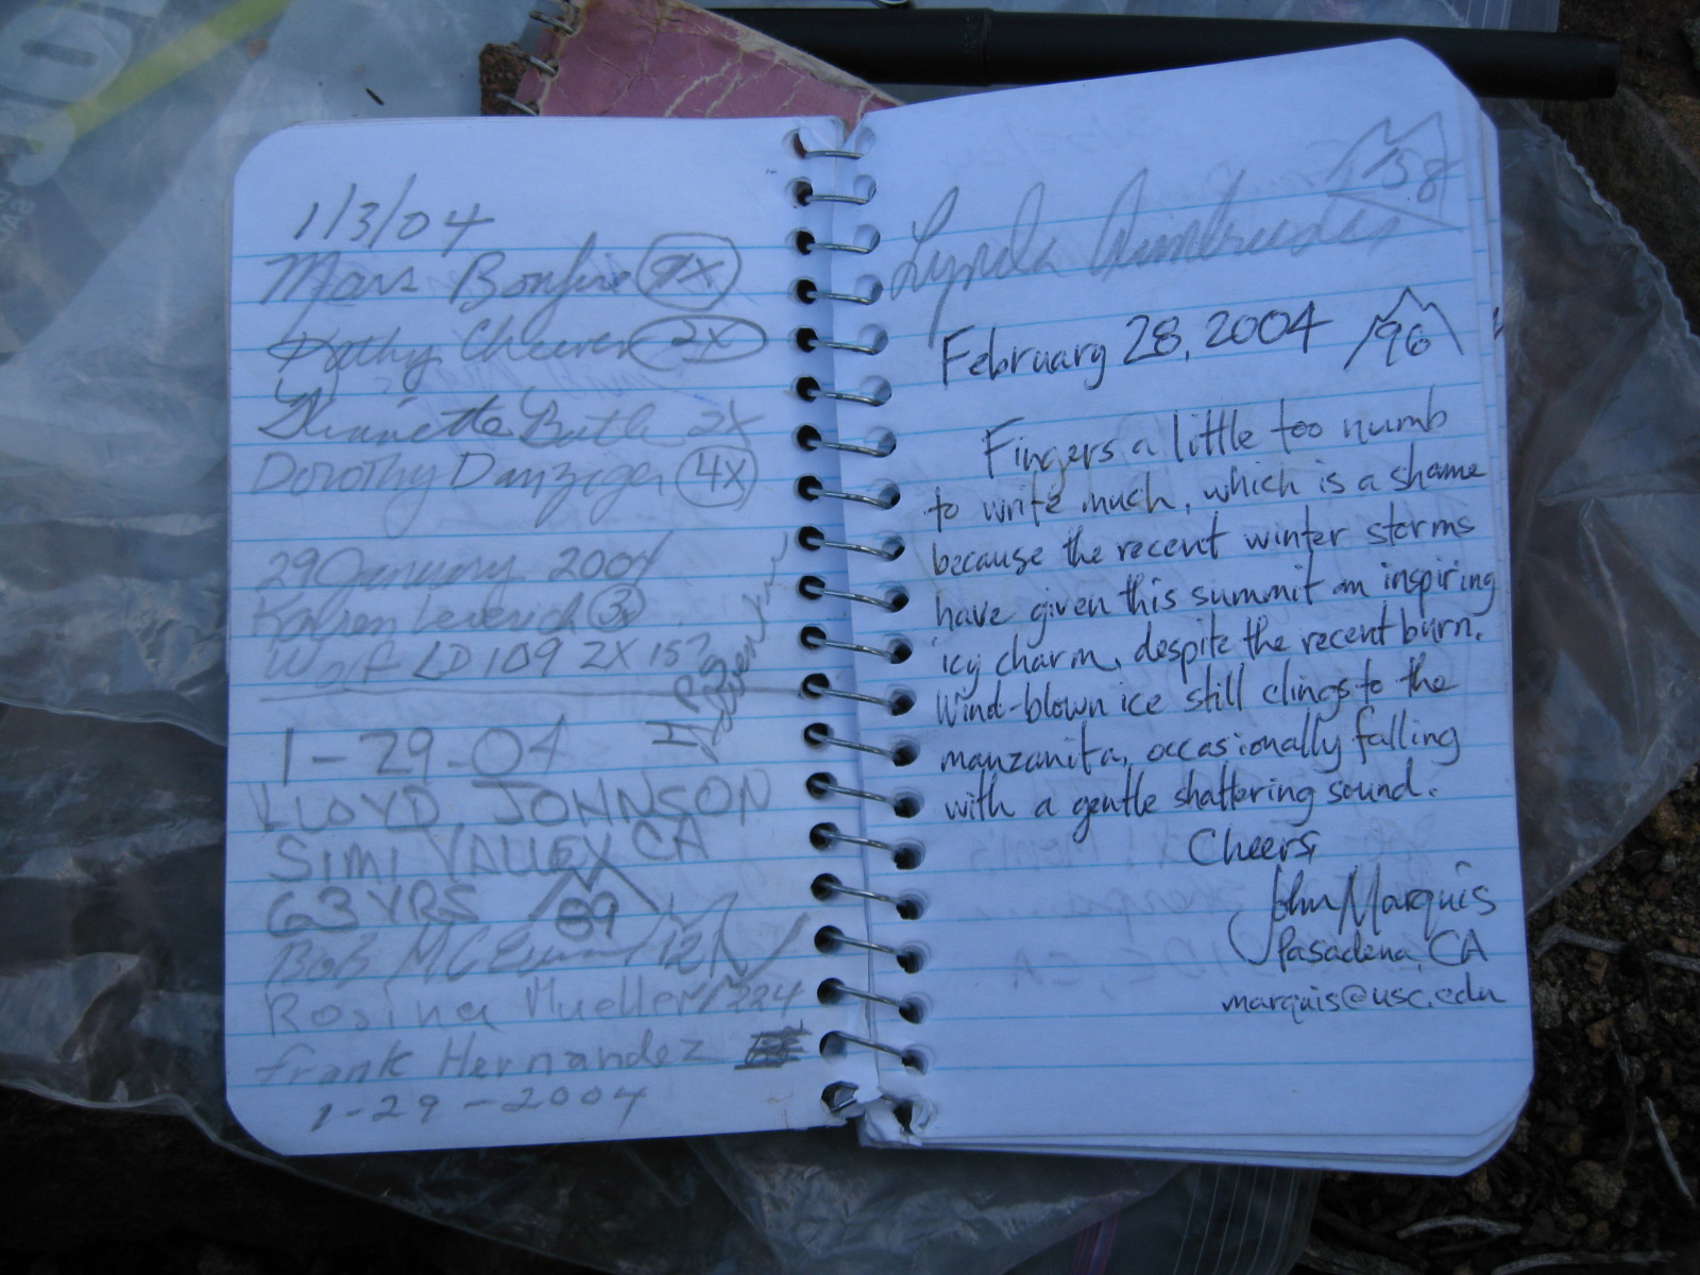 1/3/04
Mars Bonfire 9X
Kathy Cheever 2X
2X
Dorothy Danziger 4X
29 January 2004
3x
Wolf LD 109 2X
HPS
1-29-04
LLOYD JOHNSON
SIMI VALLEY CA
63 YRS 89
Bob McEwan
Rosina Mueller 224
Frank Hernandez
1-29-2004
158
Lynda
February 28, 2004 96
Fingers a little too numb
to write much, which is a shame
because the recent winter storms
have given this summit an inspiring
icy charm, despite the recent burn.
Wind-blown ice still clings to the
manzanita, occasionally falling
with a gentle shattering sound.
Cheers,
John Marquis
Pasadena, CA
marquis@usc.edu